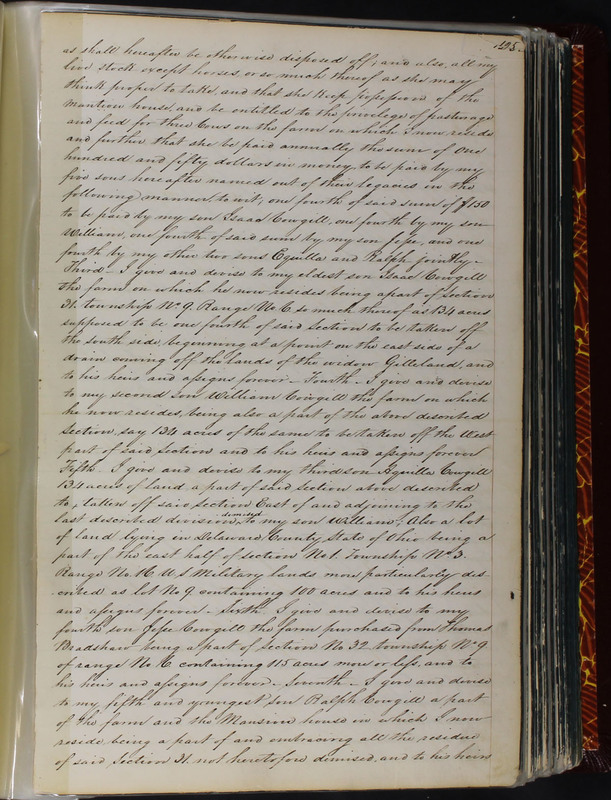 125.
as shall hereafter be otherwise disposed off; and also, all my
live stock except horses, or so much thereof as she may
think proper to take, and that she keep possession of the
mantion house, and be entitled to the privelege of pasturage
and feed for three Cows on the farm on which I now reside
and further that she be paid annually the sum of One
hundred and fifty dollars in money, to be paid by my
five sons here after named out of their legacies in the
following manner, to wit; one fourth of said sum of $150
to be paid by my son Isaac Cowgill, one fourth by my son
William, one fourth of said sum by my son Jesse, and one
fourth by my other two sons Equilla and Ralph jointly –
Third – I give and devise to my eldest son Isaac Cowgill
the farm on which he now resides being a part of Section
31. township No 9. Range No 6. so much thereof as 134 acres
supposed to be one fourth of said Section to be taken off
the south side, beginning at a point on the east side of a
drain coming off the lands of the widow Gilleland, and
to his heirs and assigns forever – Fourth – I give and devise
to my second Son William Cowgill the farm on which
he now resides, being also a part of the above described
Section, say 134 acres of the same to be taken off the West
part of said Section and to his heirs and assigns forever
Fifth – I give and devise to my third son Aquilla Cowgill
134 acres of land a part of said Section above described
to, taken off said Section East of and adjoining to the
last described devision, demised to my son William; Also a lot
of land lying in Delaware County State of Ohio being a
part of the east half of section No 1. Township No 3.
Range No. 16. U S Military lands more particularly des-
-cribed as lot No 9 containing 100 acres and to his heirs
and assigns forever – Sixth. I give and devise to my
fourth son Jesse Cowgill the farm purchased from Thomas
Bradshaw being a part of Section No 32. township No 9
of range No 6. containing 115 acres more or less, and to
his heirs and assigns forever – Seventh – I give and devise
to my fifth and youngest Son Ralph Cowgill a part
of the farm and the Mansion house in which I now
reside being a part of and embracing all the residue
of said Section 31. not heretofore demised, and to his heirs